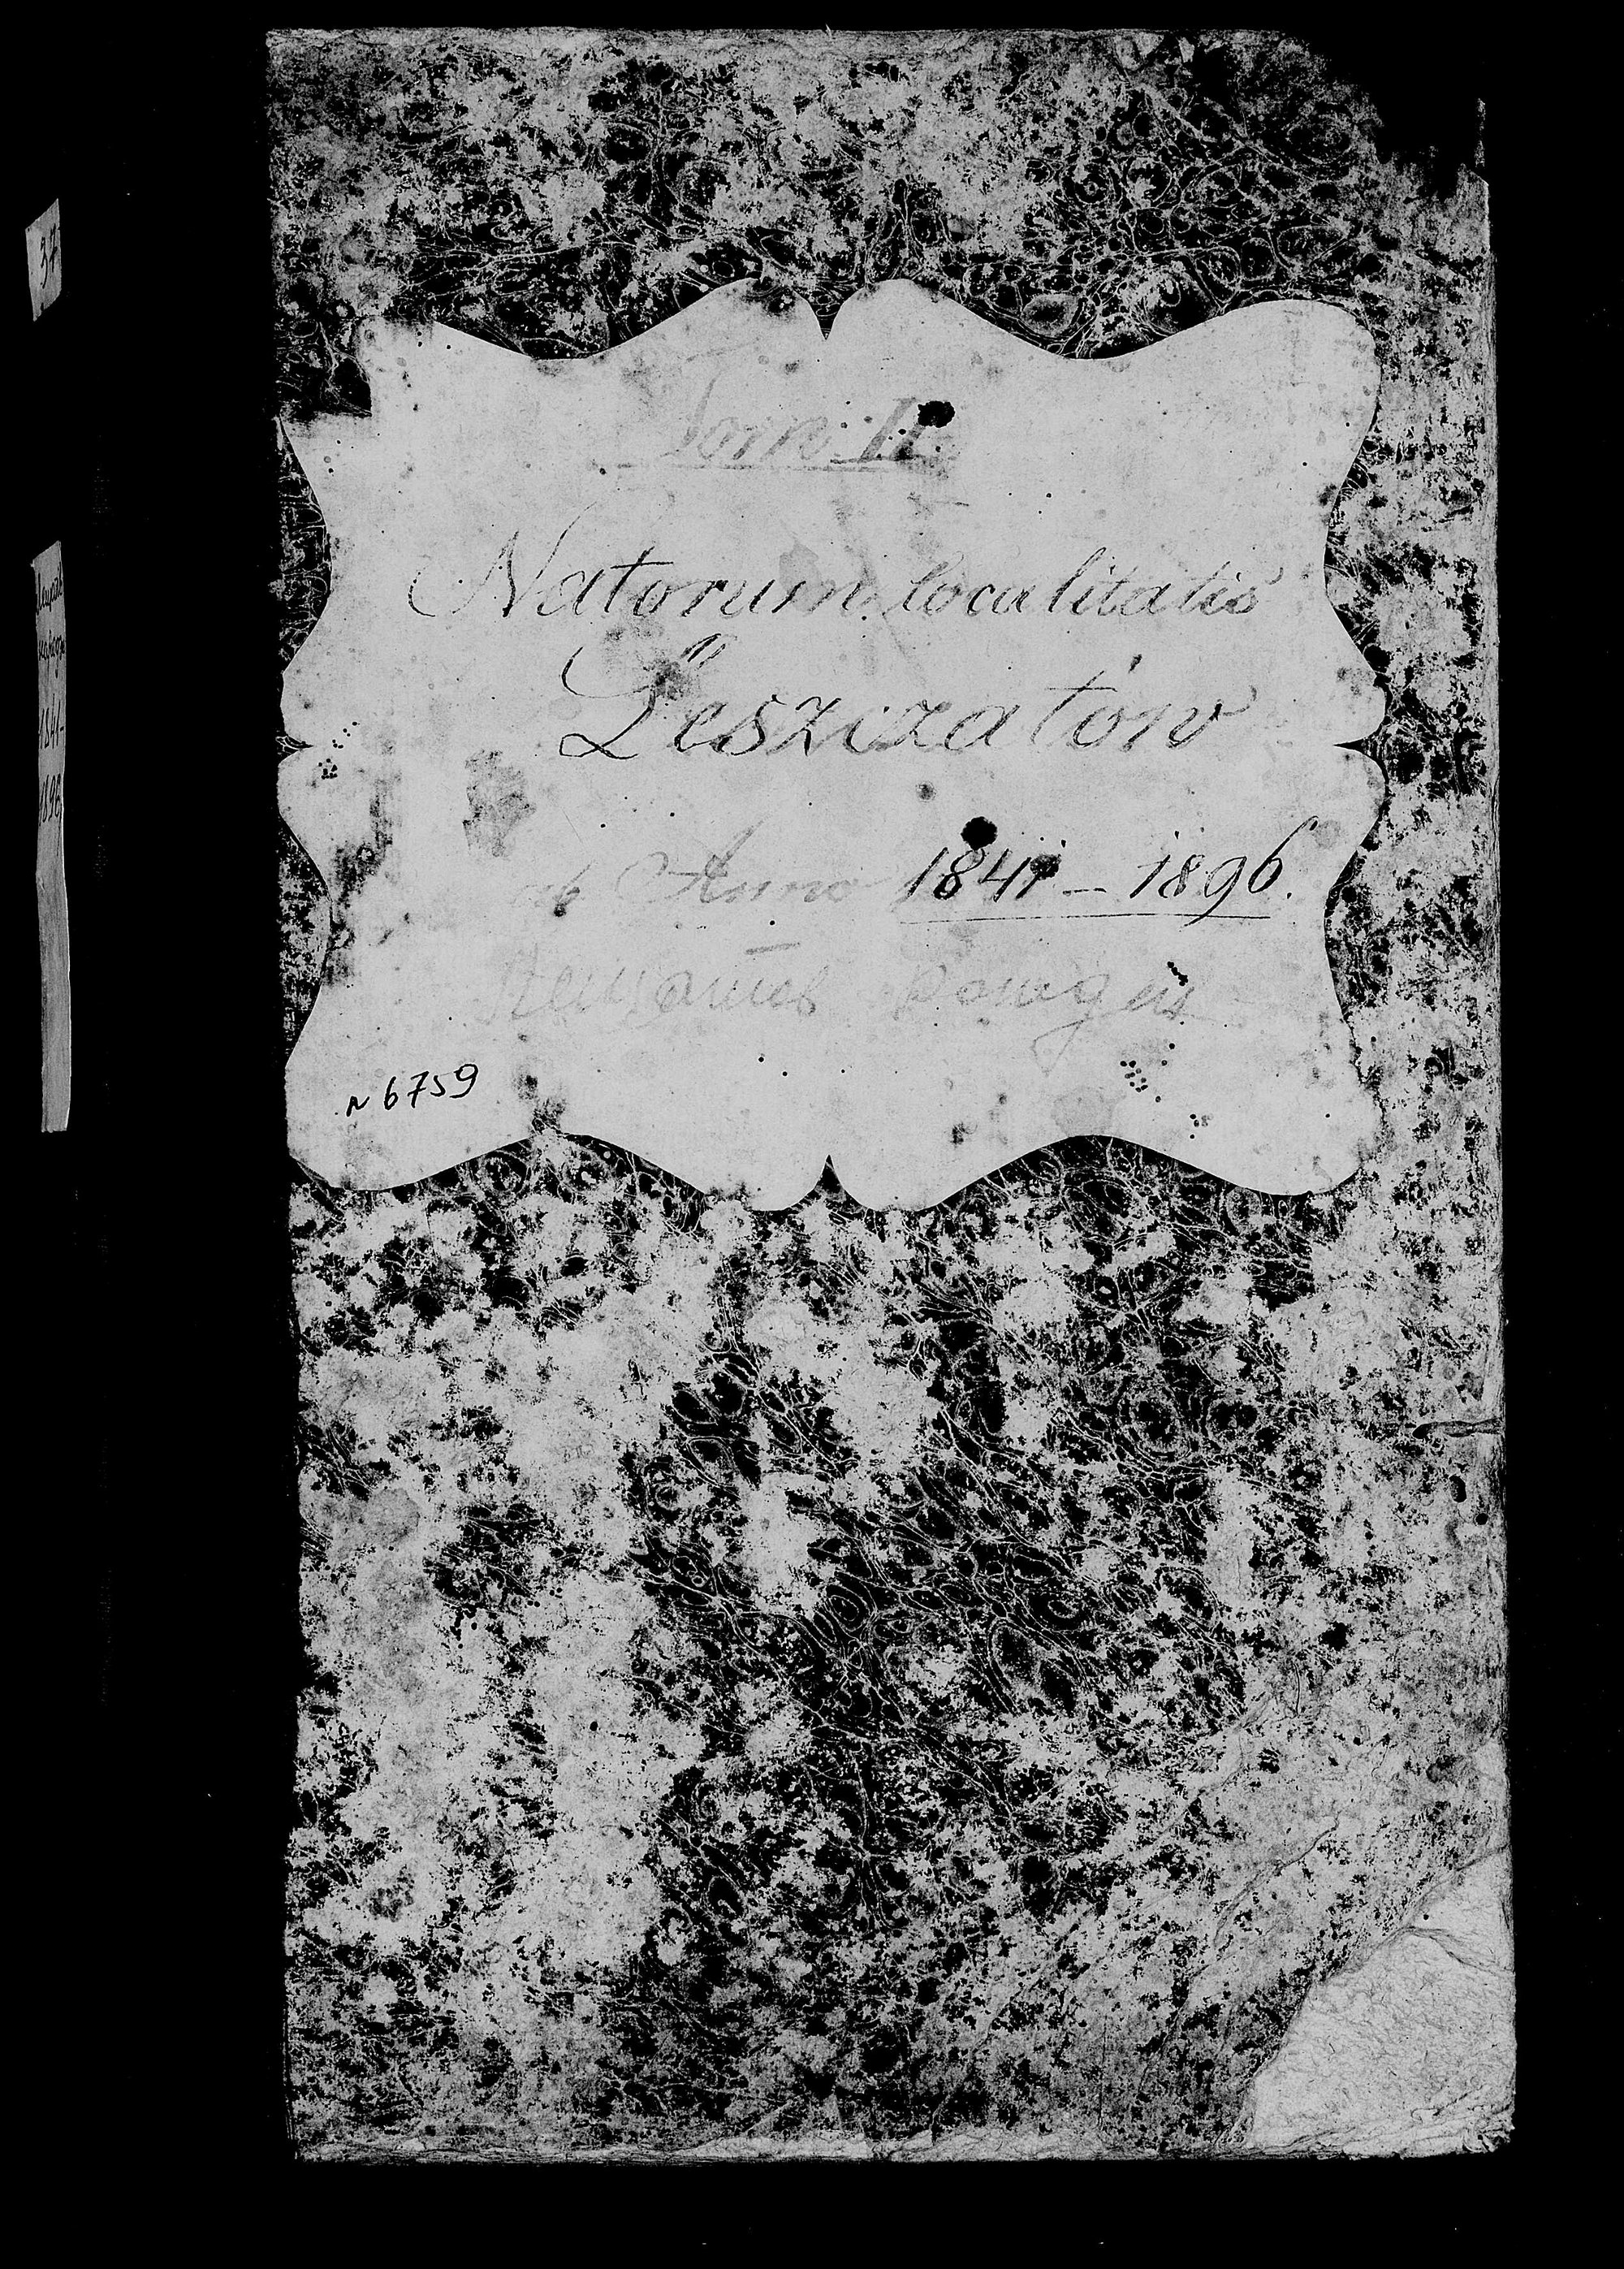 Tom. II.
Natorum localitatis
Leszczatów
ab Anno 1841 – 1896.
N 6759
37
1841-
1896